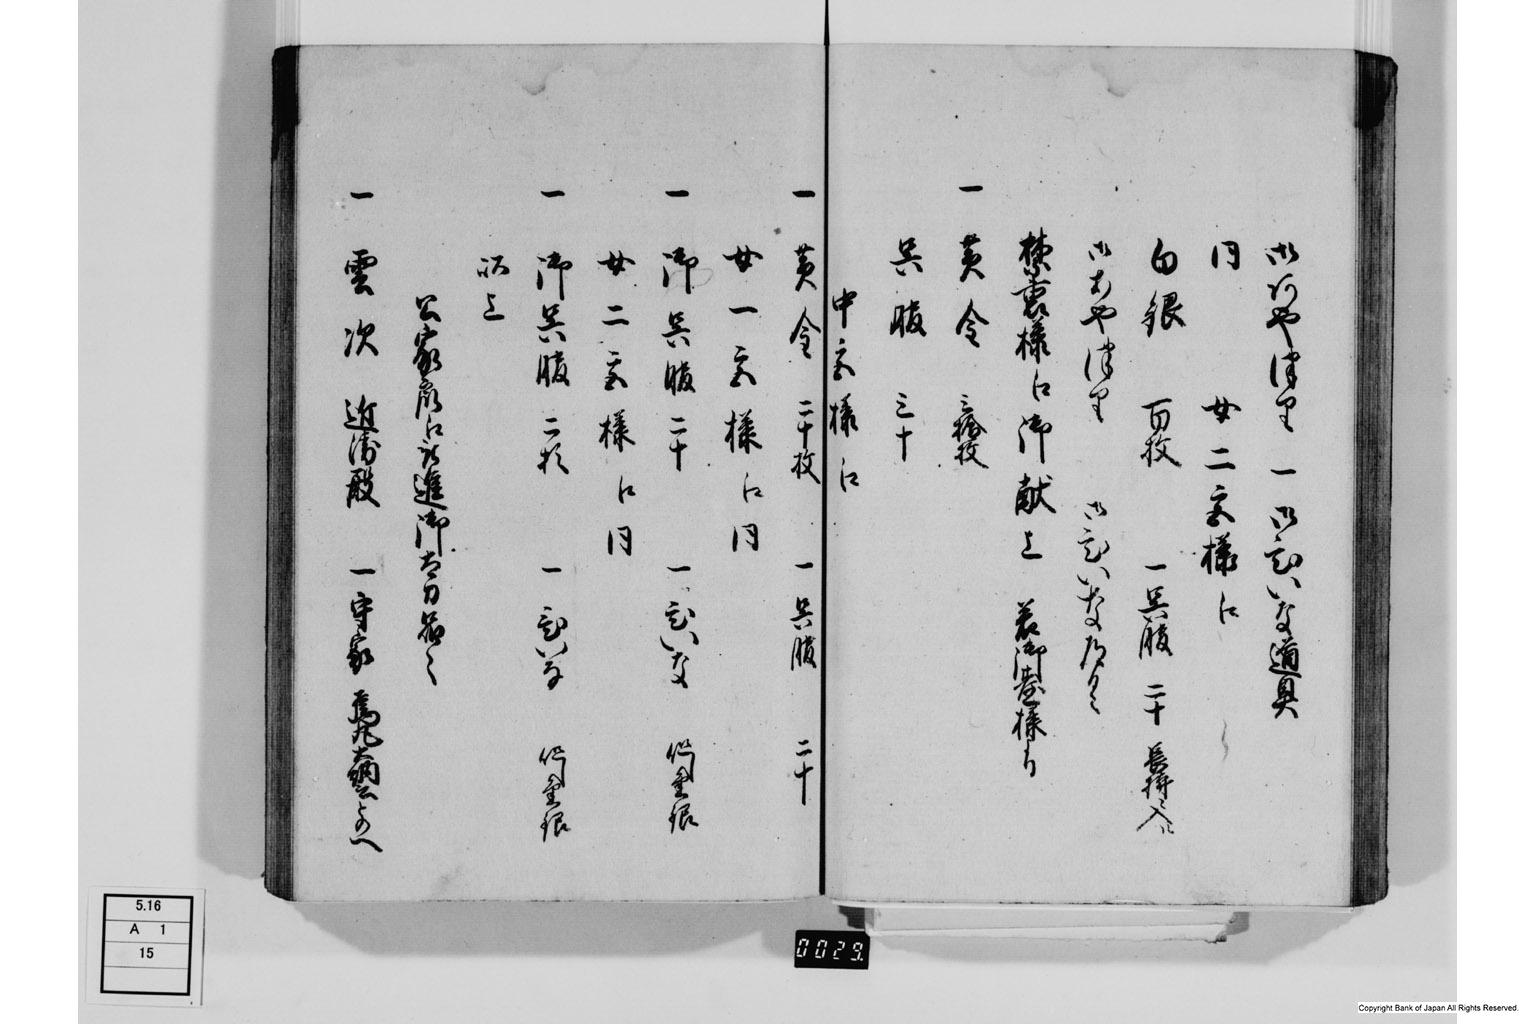 御あやつり 一 御ひいな道具
同 女二宮様江
白銀 百枚 一 呉服 二十 長持ニ入
御あやつり 御ひいな
禁裏様江御献上 若御台様ゟ
一 黄金 三拾枚
呉服 三十
中宮様江
一 黄金 二十枚 一 呉服 二十
女一宮様江 同
一 御呉服 二十 一 ひいな 作金銀
女二宮様江 同
一 御呉服 二十 一 ひいな 作金銀
以上
公家衆江被進御太刀
一 雲次 近衛殿 一 守家 烏丸大納言との へ
5.16
A 1
15
0029.
Copyright Bank of Japan All Rights Reserved.